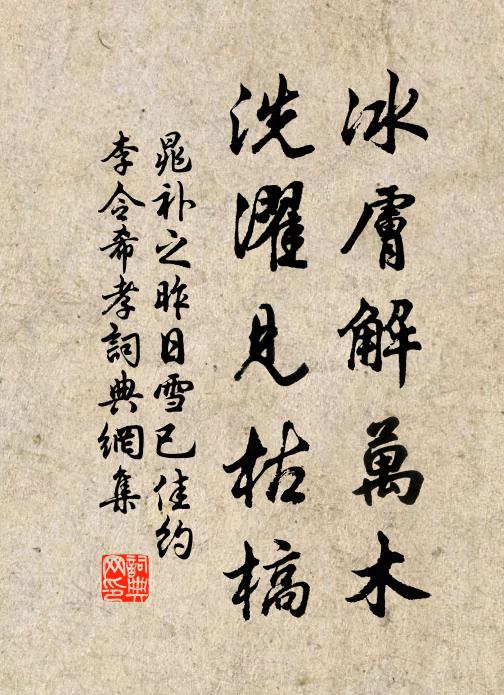 冰膚解萬木
洗濯見枯槁
晁補之昨日雪已佳約
李令希孝詞典網集
詞典
网印